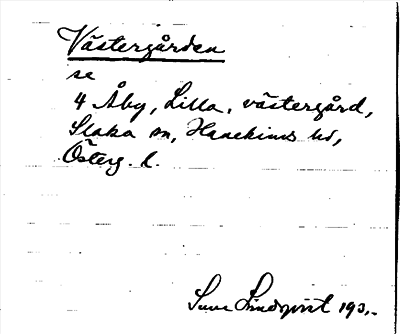 Västergården
se
4 Åby, Lilla, västergård,
Slaka sn, Hanekinds hd,
Österg. l.
Sune Lindqvist 193.-